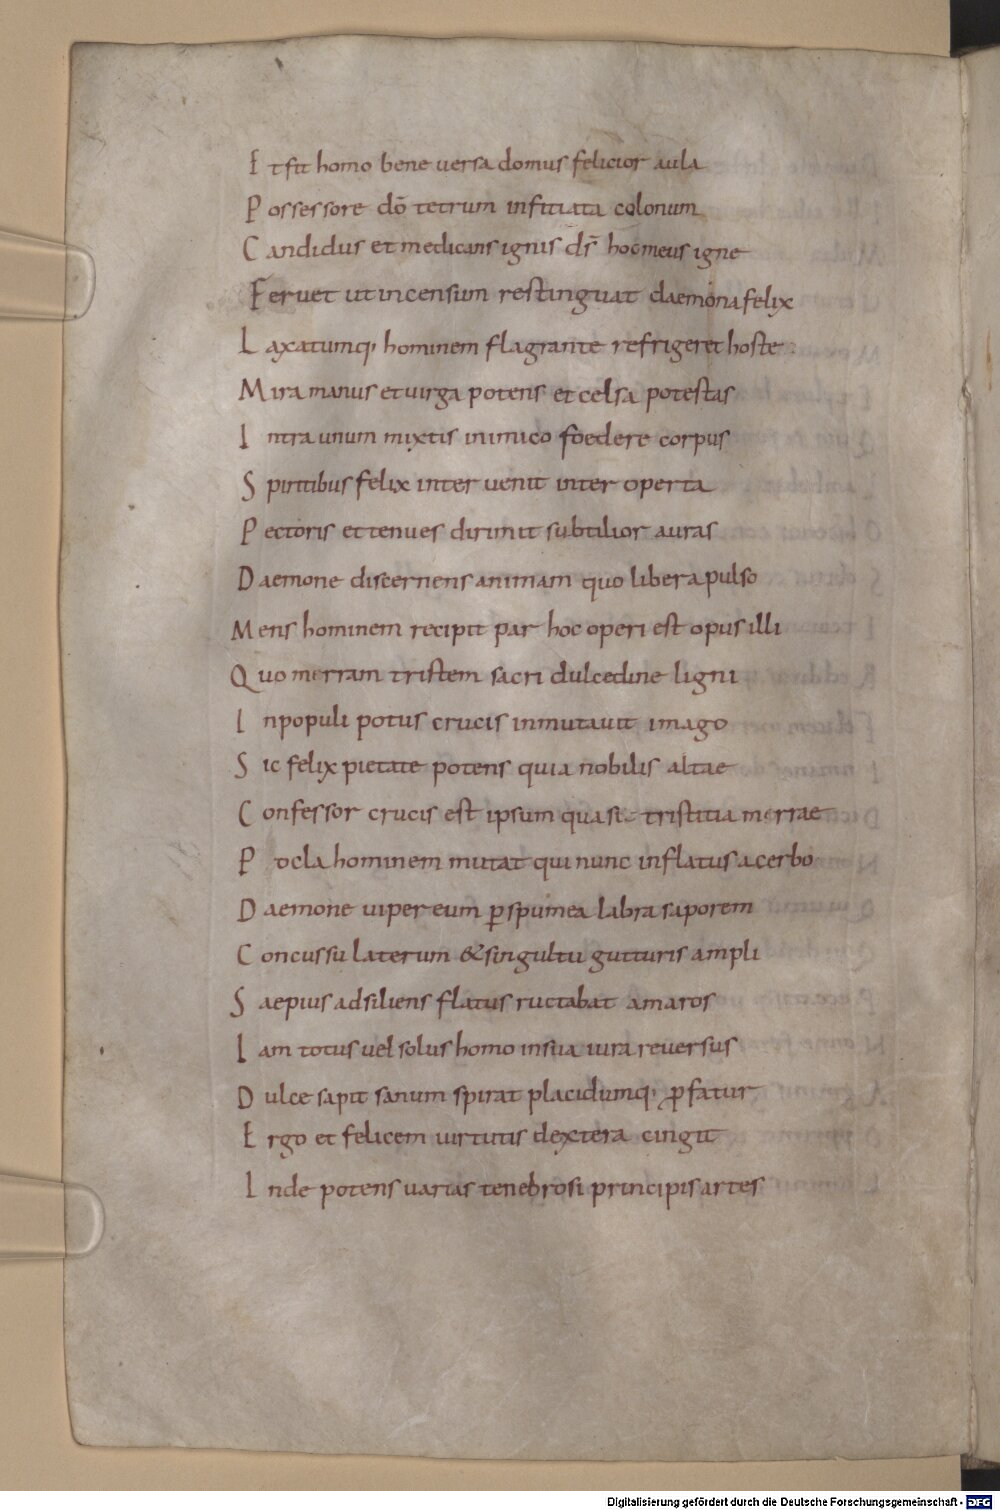 Et fit homo bene versa domus felicior aula
Possessore dō tetrum infitiata colonum
Candidus et medicans ignis ds̄ hoc meus igne
Fervet ut incensum restinguat daemona felix
Laxatumq; hominem flagrante refrigeret hoste
Mira manus et virga potens et celsa potestas
Intra unum mixtis inimico foedere corpus
Spiritibus felix inter venit inter operta
Pectoris et tenues dirimit subtilior auras
Daemone discernens animam quo libera pulso
Mens hominem recipit par hoc operi est opus illi
Quo merram tristem sacri dulcedine ligni
In populi potus crucis inmutavit imago
Sic felix pietate potens quia nobilis altae
Confessor crucis est ipsum quasi tristitia merrae
Pocla hominem mutat qui nunc inflatus acerbo
Daemone vipereum ꝑ spumea labra saporem
Concussu laterum & singultu gutturis ampli
Saepius adsiliens flatus ructabat amaros
Iam totus vel solus homo in sua iura reversus
Dulce sapit sanum spirat placidumq; ꝓfatur
Ergo et felicem virtutis dextera cingit
Inde potens varias tenebrosi principis artes
Digitalisierung gefördert durch die Deutsche Forschungsgemeinschaft - DFG